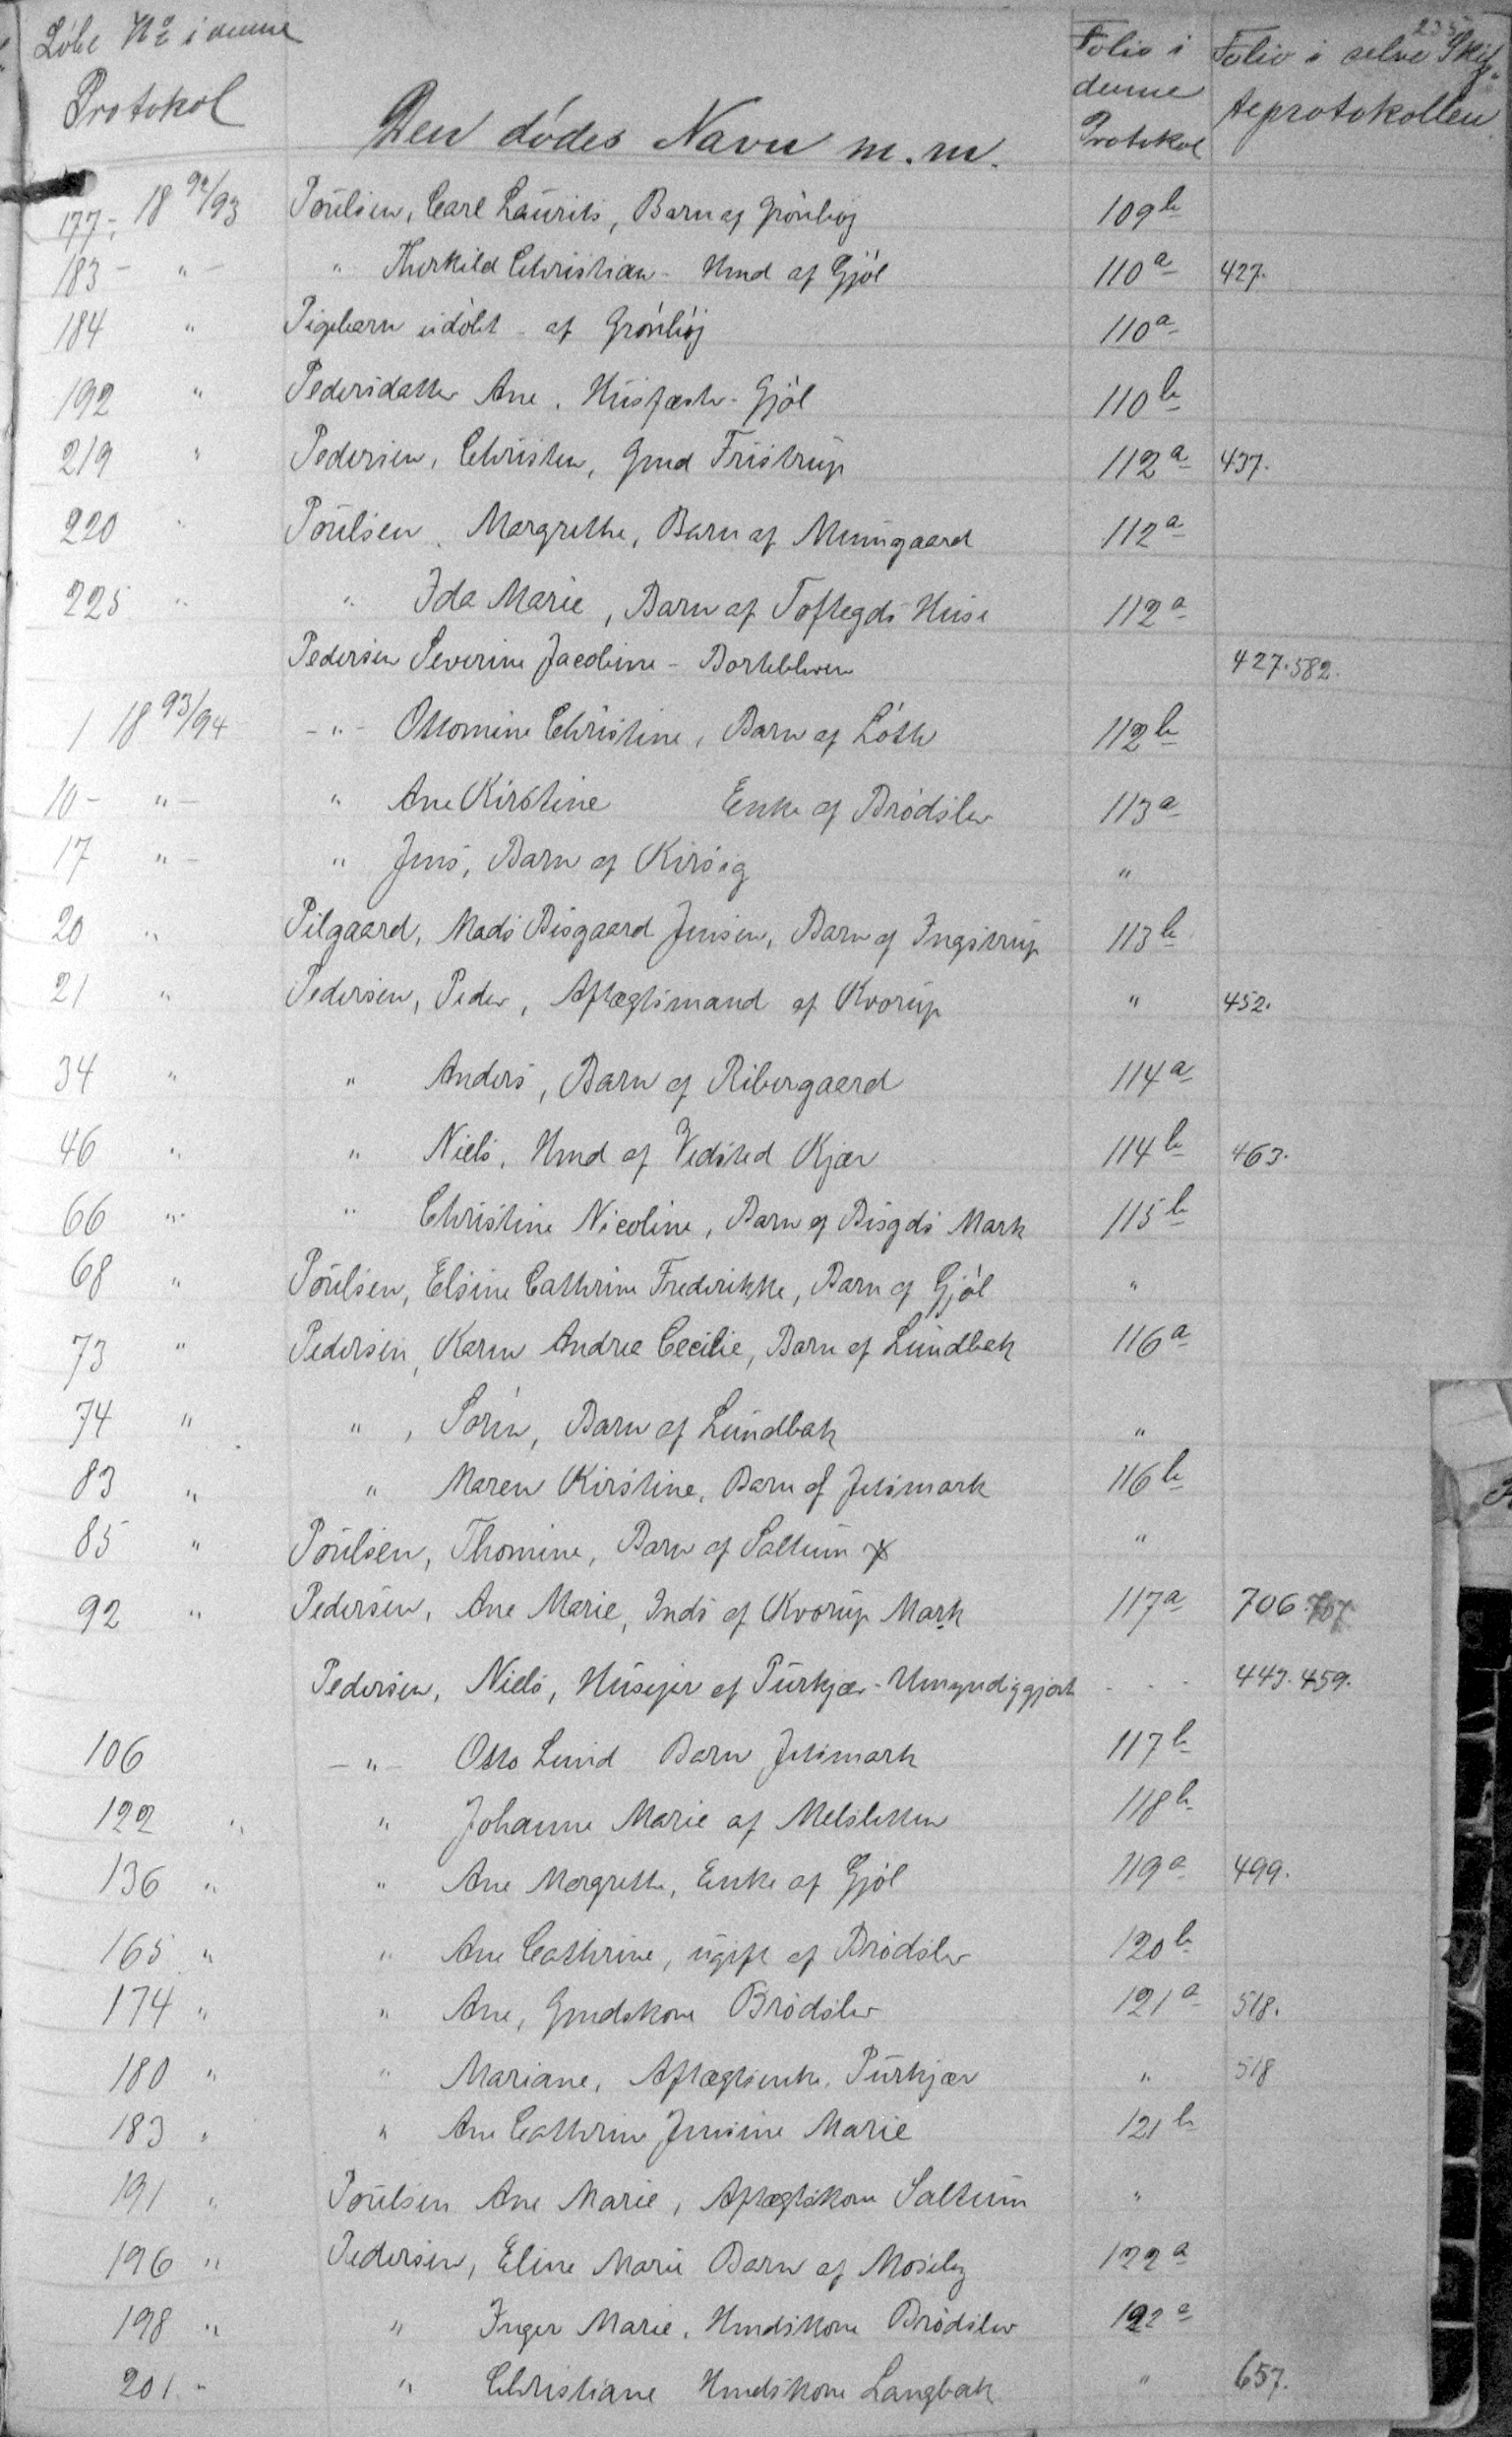 235
Løbe No i denne Protokol | Den dødes Navn m.m. | Folio i denne Protokol | Folio i selve Skifteprotokollen
177 - 18 92/93 | Poulsen, Carl Laurits, Barn af Grønhøj | 109b
183 - " - | " Therkild Christian - Hmd af Gjøl | 110a | 427.
184 " | Pigebarn udøbt - af Grønhøj | 110a
192 " | Pedersdatter Ane, Husfæster - Gjøl | 110b
219 " | Pedersen, Christen, Gmd Fristrup | 112a | 437.
220 " | Poulsen, Margrethe, Barn af Munngaard | 112a
225 " | " Ida Marie, Barn af Toftegds Huse | 112a
Pedersen Severine Jacobine - Borteblven | 427. 582.
1 18 93/94 | - " - Ottomine Christine, Barn af Løth | 112b
10 - " - | " Ane Kirstine Enke af Brødslev | 113a
17 " - | " Jens, Barn af Kirsig | "
20 " | Pilgaard, Mads Bisgaard Jensen, Barn af Ingstrup | 113b
21 " | Pedersen, Peder, Aftægtsmand af Kvorup | " | 452.
34 " | " Anders, Barn af Ribergaard | 114a
46 " | " Niels, Hmd af Vedsted Kjær | 114b | 463.
66 " | " Christine Nicoline, Barn af Bisgds Mark | 115b
68 " | Poulsen, Elsine Cathrine Frederikke, Barn af Gjøl | "
73 " | Pedersen, Karen Andrea Cecilie, Barn af Lundbak | 116a
74 " | " , Søren, Barn af Lundbak | "
83 " | " Maren Kirstine, Barn af Jetsmark | 116b
85 " | Poulsen, Thomine, Barn af Saltum | "
92 " | Pedersen, Ane Marie, Inds af Kvorup Mark | 117a | 706. 707
Pedersen, Niels, Husejer af Purkjær - Umyndiggjort | . . . | 443. 459.
106 | - " - Otto Lund Barn Jetsmark | 117b
122 " | " Johanne Marie af Melsletten | 118b
136 " | " Ane Margrethe, Enke af Gjøl | 119a | 499.
165 " | " Ane Cathrine, ugift af Brødslev | 120b
174 " | " Ane, Gmdskone Brødslev | 121a | 518.
180 " | " Mariane, Aftægtsenke, Purkjær | " | 518
183 " | " Ane Cathrine Jensine Marie | 121b
191 " | Poulsen Ane Marie, Aftægtskone Saltum | "
196 " | Pedersen, Eline Marie Barn af Moseby | 122a
198 " | " Inger Marie, Hmdskone Brødslev | 122a
201 " | " Christiane Hmdskone Langbak | " | 657.